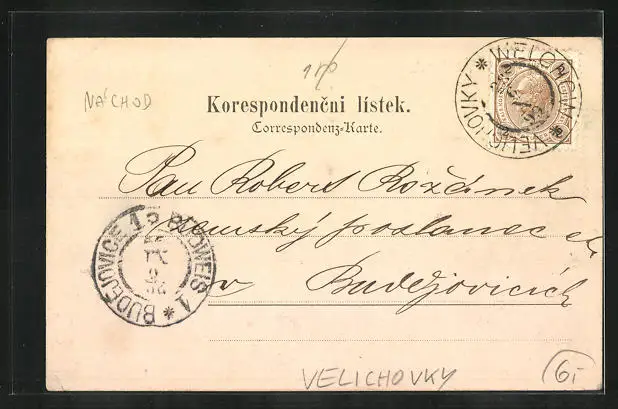 1k
NÁCHOD
WELCHOW * VELICHOVKY *
Korespondenční lístek.
Correspondenz-Karte.
Pan Robert Rožánek
zemský poslanec
v Budějovicích
BUDĚJOVICE 1 BUDWEIS 1 *
VELICHOVKY
6,-